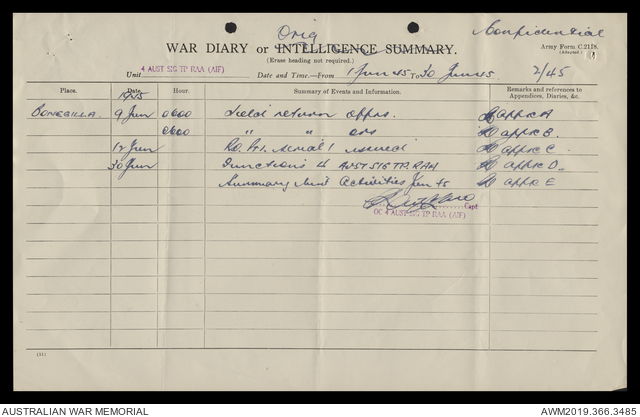 Orig
Confidential
WAR DIARY or INTELLIGENCE SUMMARY.
Army Form C.2118.
(Adapted.)
(Erase heading not required.)
Unit 4 AUST SIG TP RAA (AIF) Date and Time.—From 1 Jun 45 To 30 Jun 45 2/45
Place. Date Hour. Summary of Events and Information. Remarks and references to Appendices, Diaries, &c.
1945
BONEGILLA. 9 Jun 0600 Field return offrs. appx A
0600 " " ors appx B.
12 Jun Serial 1 issued appx C.
30 Jun Functions 4 AUST SIG TP. RAA appx D.
Summary Unit Activities Jun 45 appx E
Capt
OC 4 AUST SIG TP RAA (AIF)
AUSTRALIAN WAR MEMORIAL
AWM2019.366.3485